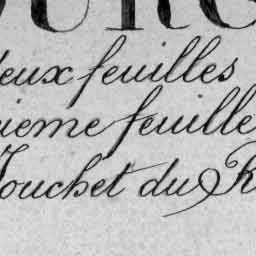 OURG
deux feuilles
ième feuille
Touchet du R